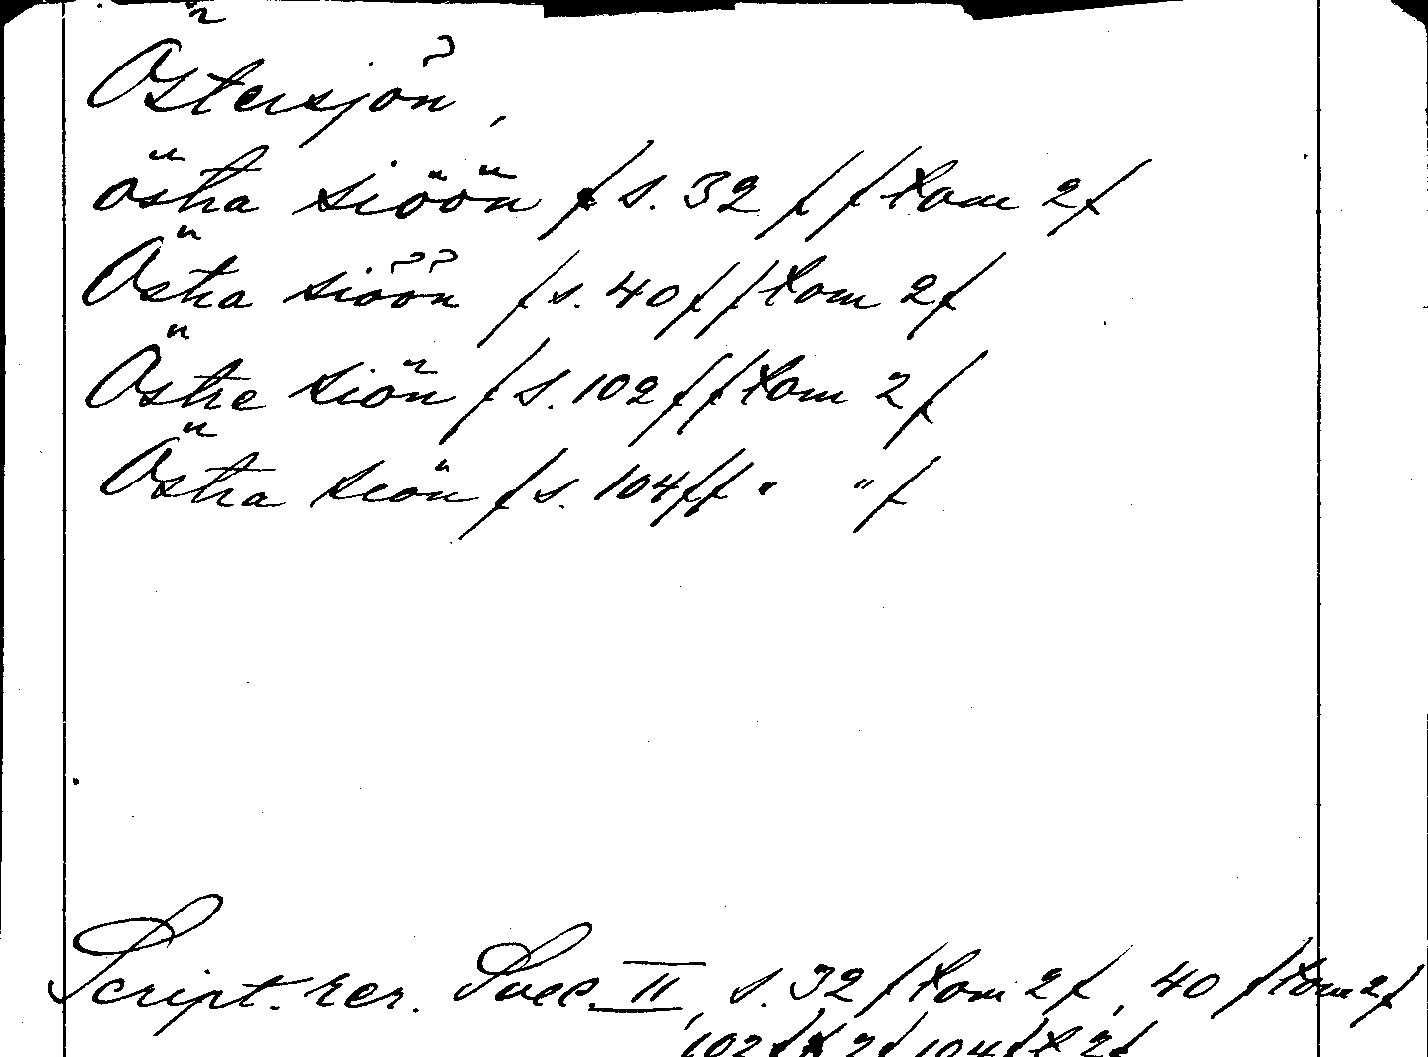 Östersjön,
östra siöön / s. 32 / / tom 2 /
Östra siöön / s. 40 / / tom 2 /
Östre siön / s. 102 / / tom 2 /
Östra siön / s. 104 / / " " /
Script. rer. Svec. II, s. 32 / tom 2 /, 40 / tom 2 /
102 / t 2 / 104 / t 2 /